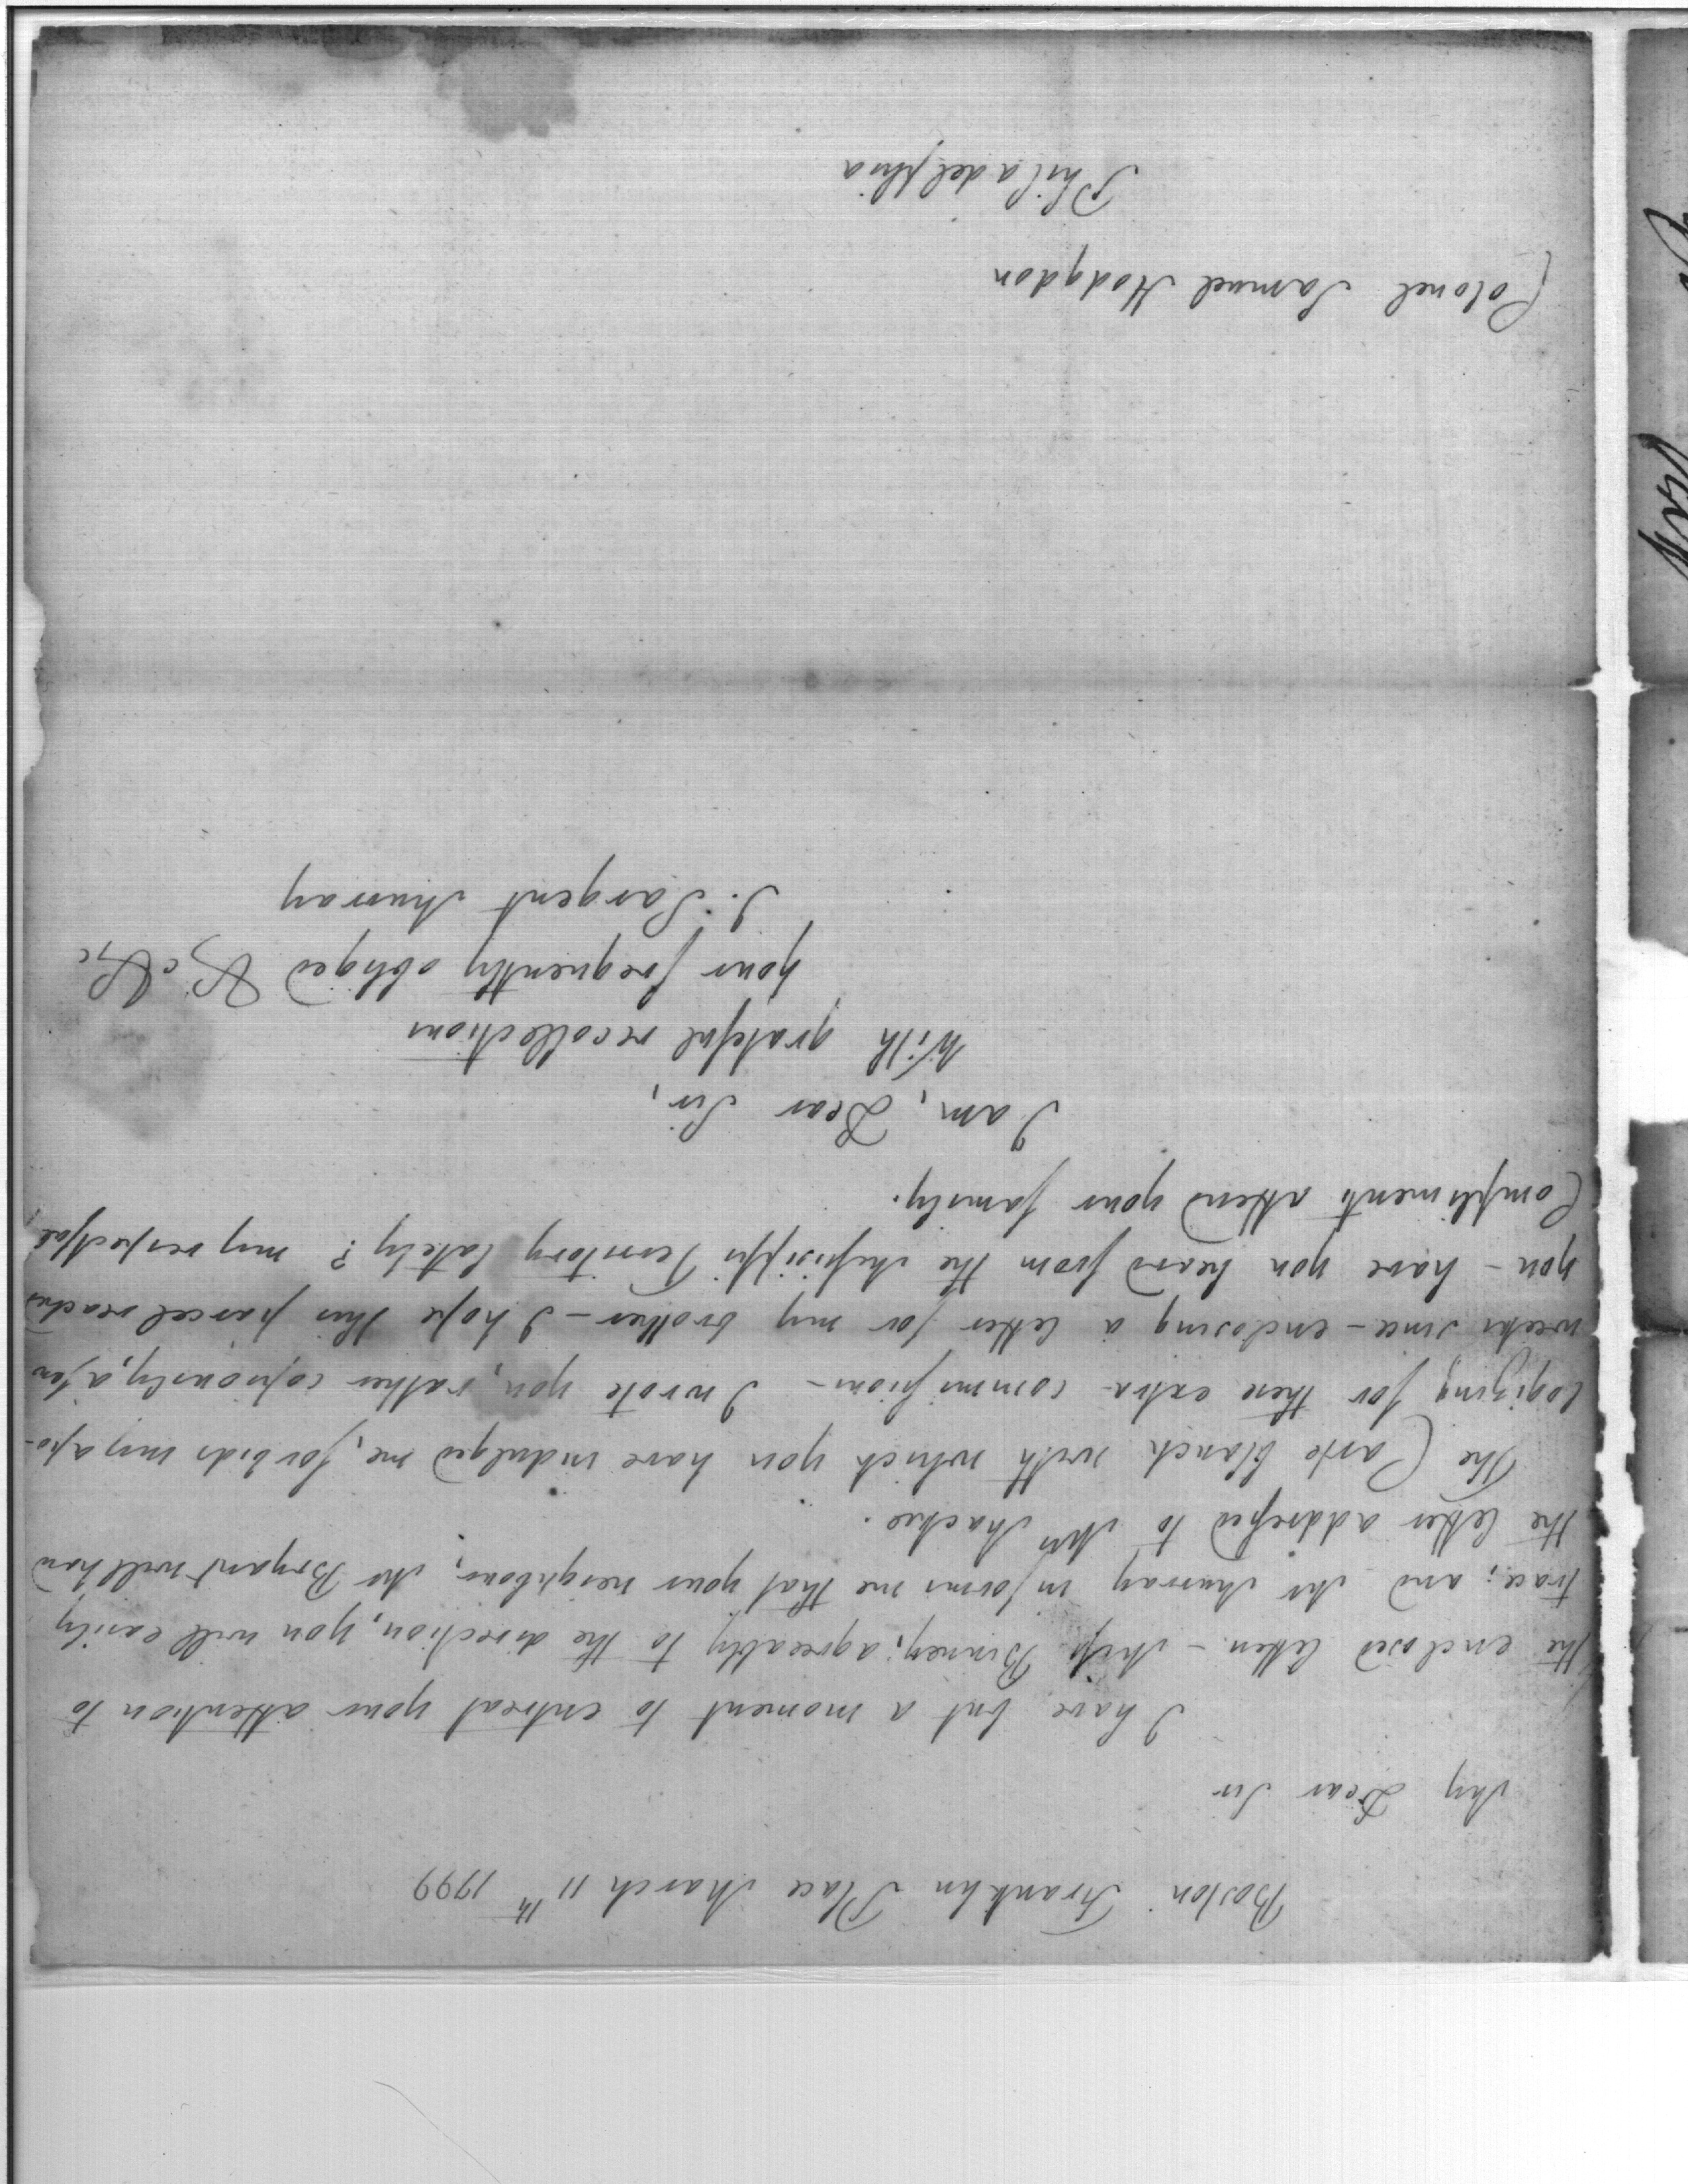 Boston Franklin Place March 11th 1799
My Dear Sir
I have but a moment to entreat your attention to
the enclosed letters - Miss Binney, agreeably to the direction, you will easily
trace; and Mr Murray informs me that your neighbour, Mr Bryant will hand
the letter addressed to Mrs Mackie.
The Carte blanch with which you have indulged me, forbids my apo-
logizing for these extra commissions - I wrote you, rather copiously, a few
weeks since - enclosing a letter for my brother - I hope this parcel reached
you - have you heard from the Missisippi Territory lately? my respectful
Compliments attend your family.
I am, Dear Sir,
With grateful recollections
your frequently obliged &c &c
J. Sargent Murray
Colonel Samuel Hodgdon
Philadelphia